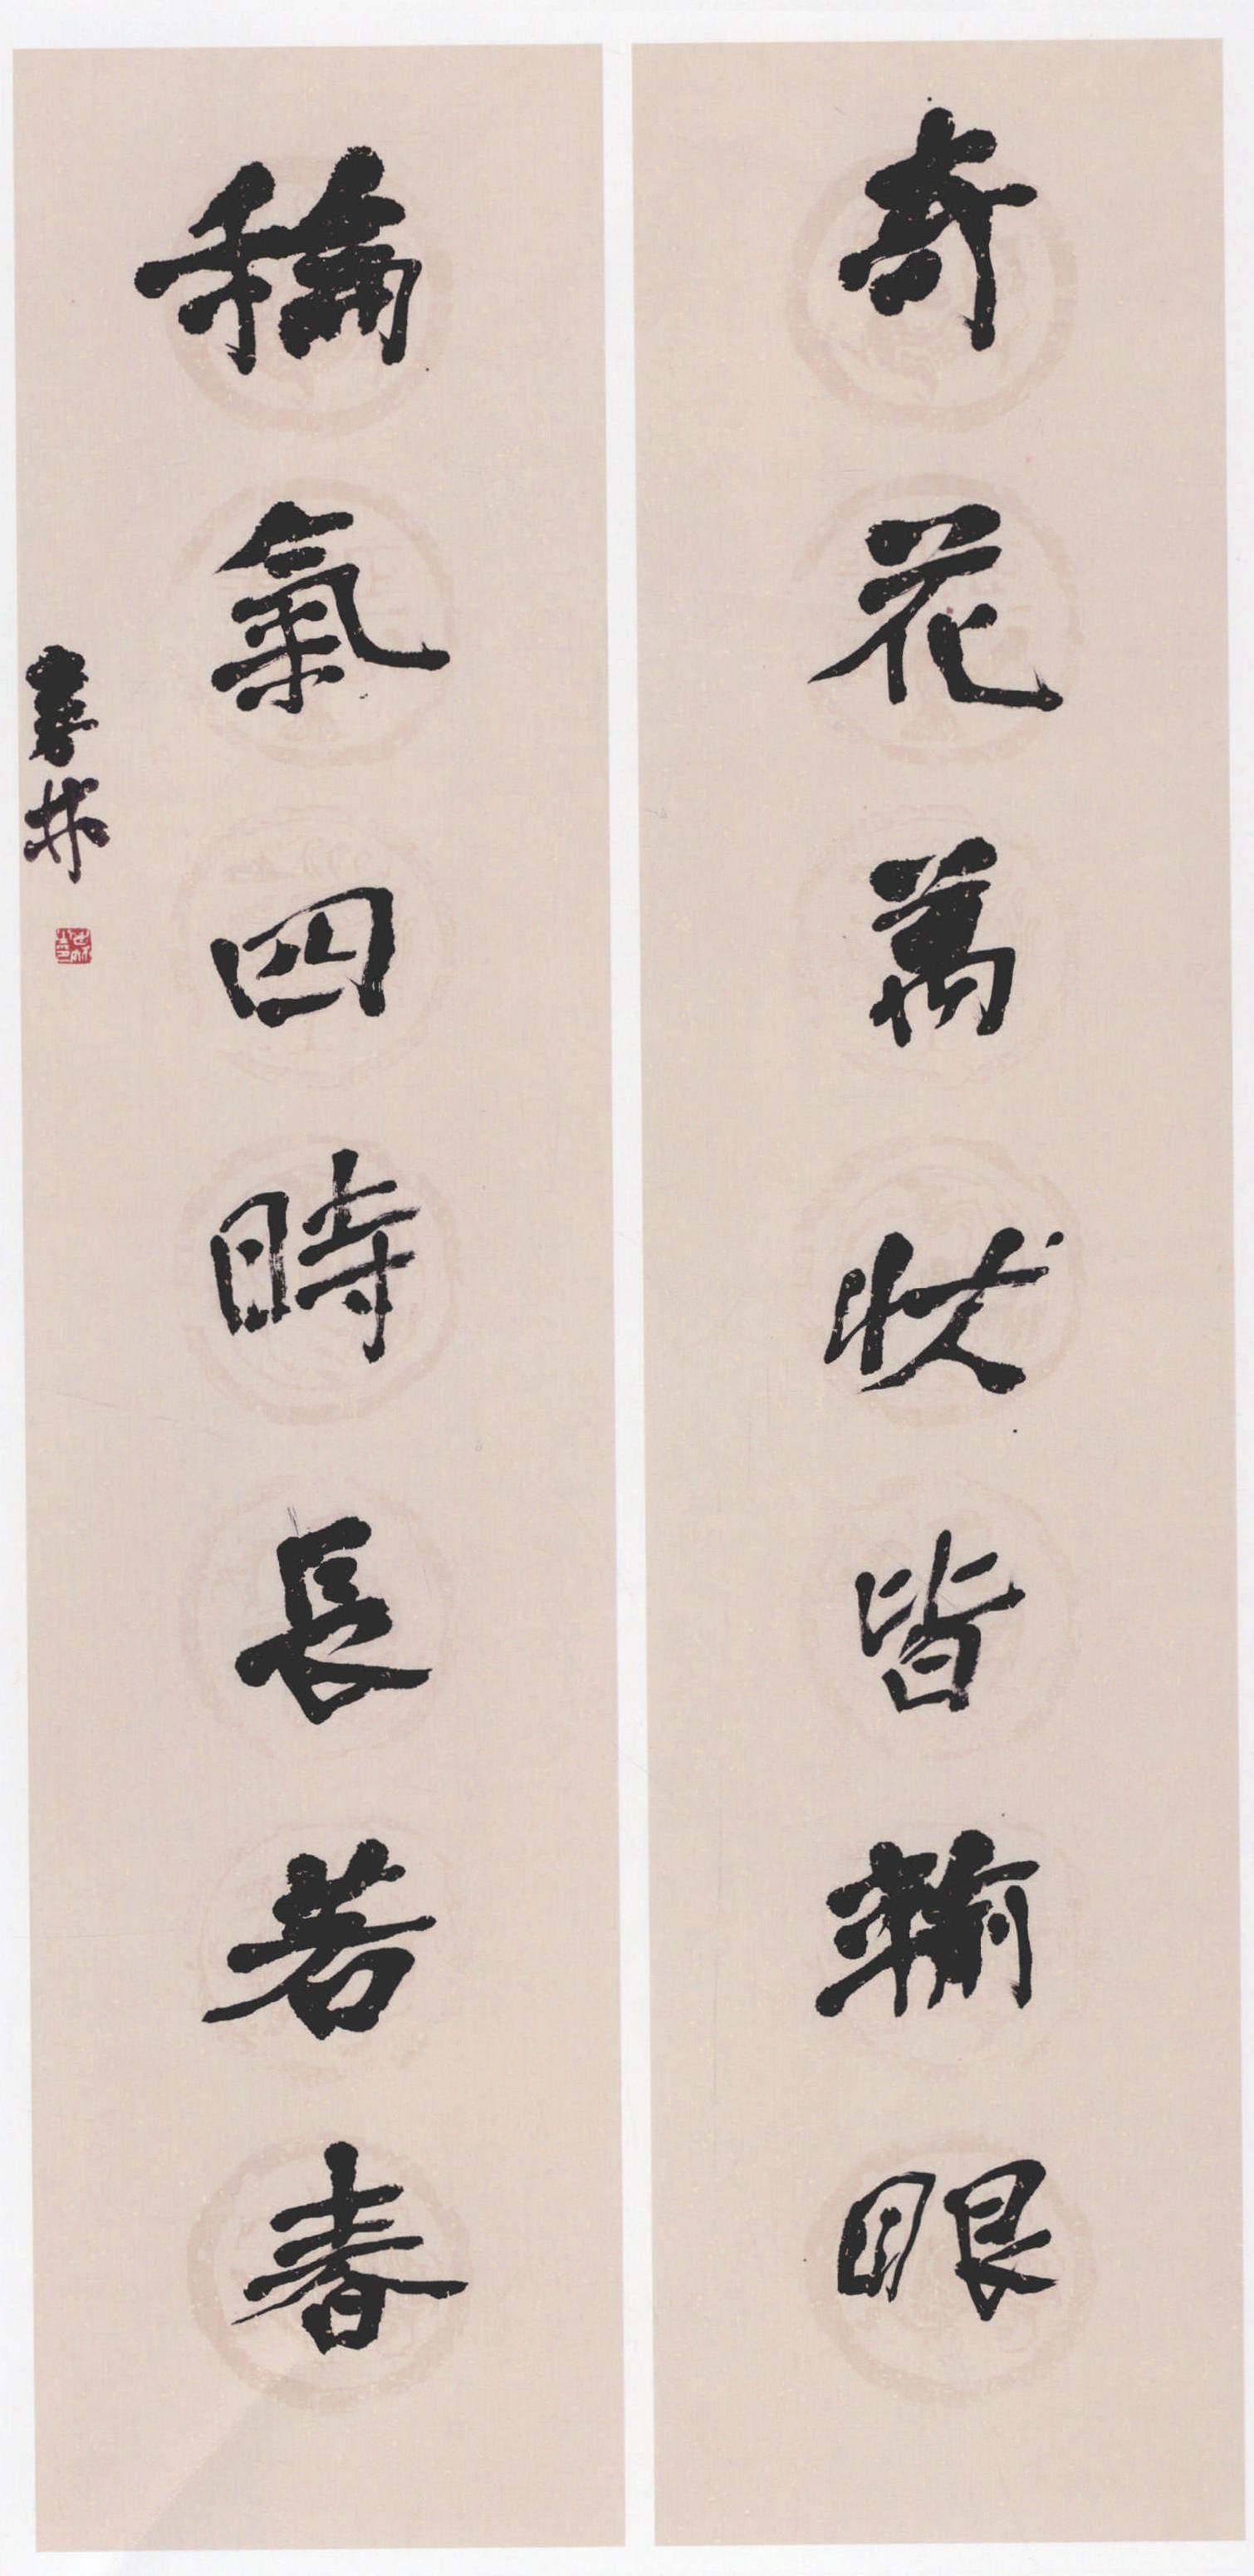 奇花萬狀皆輸眼
稱氣四時長若春